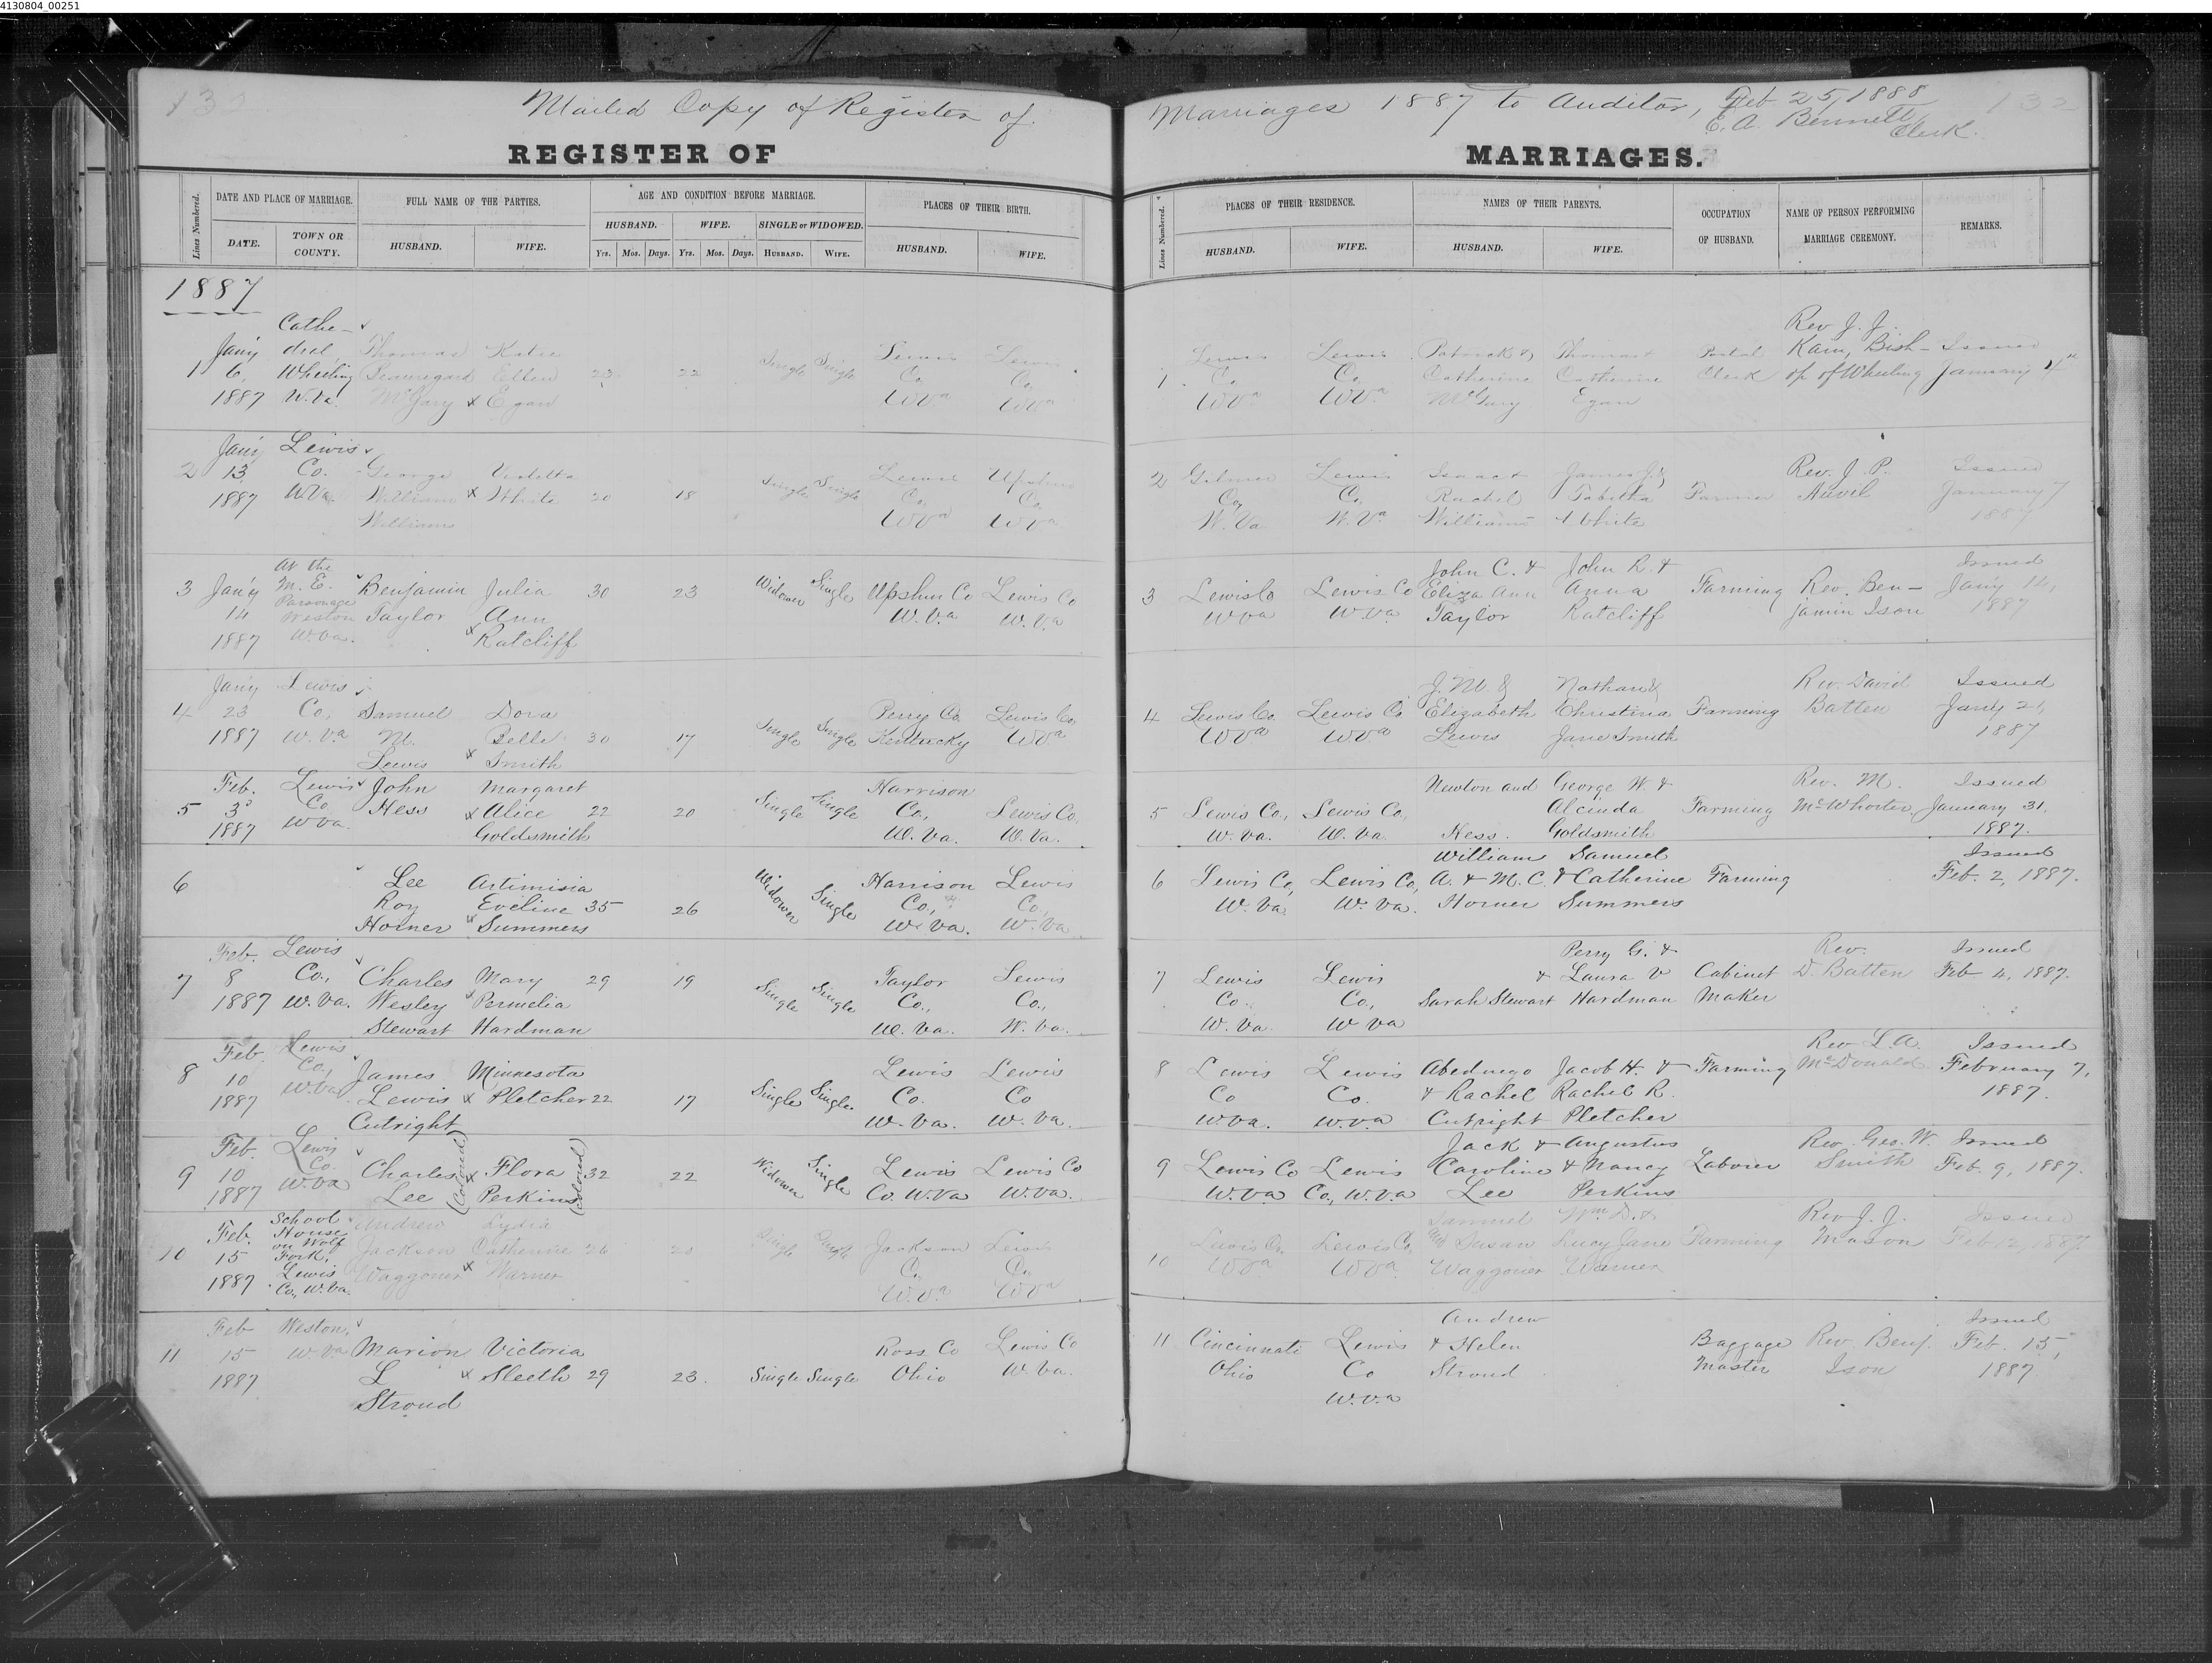 4130804_00251
132
Mailed Copy of Register of
REGISTER OF
Lines Numbered.
DATE AND PLACE OF MARRIAGE.
FULL NAME OF THE PARTIES.
AGE AND CONDITION BEFORE MARRIAGE.
PLACES OF THEIR BIRTH.
DATE.
TOWN OR COUNTY.
HUSBAND.
WIFE.
HUSBAND.
WIFE.
SINGLE or WIDOWED.
HUSBAND.
WIFE.
Yrs. Mos. Days. Yrs. Mos. Days. HUSBAND. WIFE.
1887
Cathe-
Jany dral, Thomas Katie Lewis Lewis
1 6, Wheeling Beauregard Ellen 23 22 Single Single Co, Co,
1887 W.Va. McGary x Egan WVa WVa
Jany Lewis
2 13 Co. George Violetta Lewis Upshur
1887 W.Va William x White 20 18 Single Single Co, Co,
Williams WVa WVa
At the
3 Jany M. E. Benjamin Julia 30 23 Widower Single Upshur Co Lewis Co
14 Parsonage Taylor Ann W.Va W.Va
1887 Weston W.Va. x Ratcliff
Jany Lewis
4 23 Co., Samuel Dora Perry Co Lewis Co,
1887 W.Va M. Belle 30 17 Single Single Kentucky WVa
Lewis x Smith
Feb. Lewis John Margaret Harrison
5 3d Co Hess x Alice 22 20 Single Single Co., Lewis Co.
1887 WVa. Goldsmith W.Va. W.Va.
6 Lee Artimisia Harrison Lewis
Roy Eveline 35 26 Widower Single Co., Co,
Horner x Summers W.Va. W.Va.
Feb. Lewis
7 8 Co., Charles Mary 29 19 Single Single Taylor Lewis
1887 W.Va. Wesley x Permelia Co., Co.,
Stewart Hardman W.Va. W.Va.
Feb. Lewis
8 10 Co., James Minnesota Lewis Lewis
1887 W.Va Lewis x Pletcher 22 17 Single Single Co. Co
Cutright W.Va. W.Va.
Feb. Lewis
9 10 Co. Charles x Flora 32 22 Widower Single Lewis Lewis Co
1887 W.Va Lee (Colored) Perkins (Colored) Co. W.Va W.Va.
Feb. School House Andrew Lydia
10 15 on Wolf Fork, Jackson Catherine 26 20 Single Single Jackson Lewis
1887 Lewis Co, W.Va. Waggoner x Warner Co, Co,
W.Va WVa
Feb Weston,
11 15 W.Va Marion Victoria Ross Co Lewis Co
1887 L x Sleeth 29 23. Single Single Ohio W.Va.
Stroud
Marriages 1887 to Auditor, Feb 25, 1888
E. A. Bennett,
Clerk.
132
MARRIAGES.
Lines Numbered.
PLACES OF THEIR RESIDENCE.
NAMES OF THEIR PARENTS.
OCCUPATION OF HUSBAND.
NAME OF PERSON PERFORMING MARRIAGE CEREMONY.
REMARKS.
HUSBAND.
WIFE.
HUSBAND.
WIFE.
Rev J. J.
Lewis Lewis Patrick & Thomas & Postal Kain, Bish- Issued
1. Co, Co, Catherine Catherine Clerk op of Wheeling January 4th
WVa WVa McGary Egan
2 Gilmer Lewis Isaac & James J. & Rev. J. P. Issued
Co, Co, Rachel Tabitha Farmer Auvil January 7
W.Va W.Va Williams White 1887
John C. & John R. & Issued
3 Lewis Co Lewis Co Eliza Ann Anna Farming Rev. Ben- Jany 14,
WVa W.Va Taylor Ratcliff jamin Ison 1887
J. M. & Nathan & Rev. David Issued
4 Lewis Co Lewis Co Elizabeth Christina Farming Batten Jany 21,
WVa WVa Lewis Jane Smith 1887
Newton and George W. & Rev. M. Issued
5 Lewis Co., Lewis Co., Alcinda Farming McWhorter January 31,
W.Va. W.Va Hess. Goldsmith 1887.
William Samuel Issued
6 Lewis Co, Lewis Co, A. & M. C. & Catherine Farming Feb. 2, 1887.
W.Va W.Va. Horner Summers
Perry G. & Rev. Issued
7 Lewis Lewis & Laura V Cabinet D. Batten Feb 4, 1887.
Co. Co., Sarah Stewart Hardman Maker
W.Va. W Va
Rev L. A. Issued
8 Lewis Lewis Abednego Jacob H. & Farming McDonald February 7,
Co Co. & Rachel Rachel R. 1887.
W.Va. W.Va Cutright Pletcher
Jack & Augustus Rev. Geo. W. Issued
9 Lewis Co Lewis Caroline & Nancy Laborer Smith Feb. 9, 1887.
W.Va Co., W.Va Lee Perkins
Samuel Wm D. & Rev J. J. Issued
10 Lewis Co, Lewis Co, Susan Lucy Jane Farming Mason Feb 12, 1887.
WVa WVa Waggoner Warner
Andrew Issued
11 Cincinnati Lewis & Helen Baggage Rev. Benj. Feb. 15,
Ohio Co Stroud Master Ison 1887
W.Va